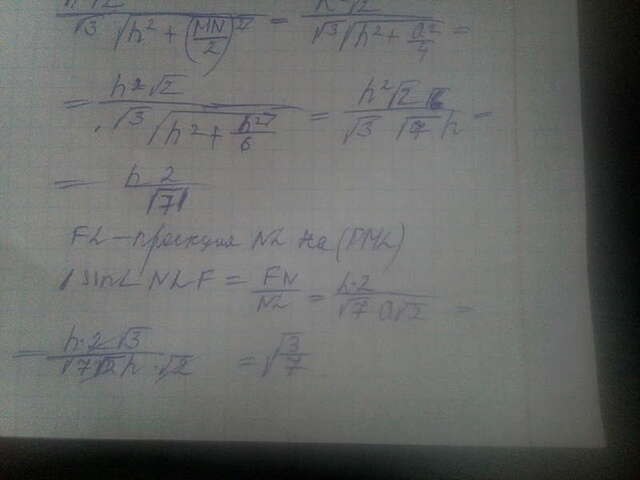 h²√2 / (√3 √(h² + (MN/2)²)) = h²√2 / (√3 √(h² + a²/4)) =
= h²√2 / (√3 √(h² + h²/6)) = h²√2 √6 / (√3 √7 h) =
= h 2 / √7
FL – проекция NL на (TML)
sin∠NLF = FN / NL = h·2 / (√7 a√2) =
= h·2·√3 / (√7 √2 h · √2) = √(3/7)